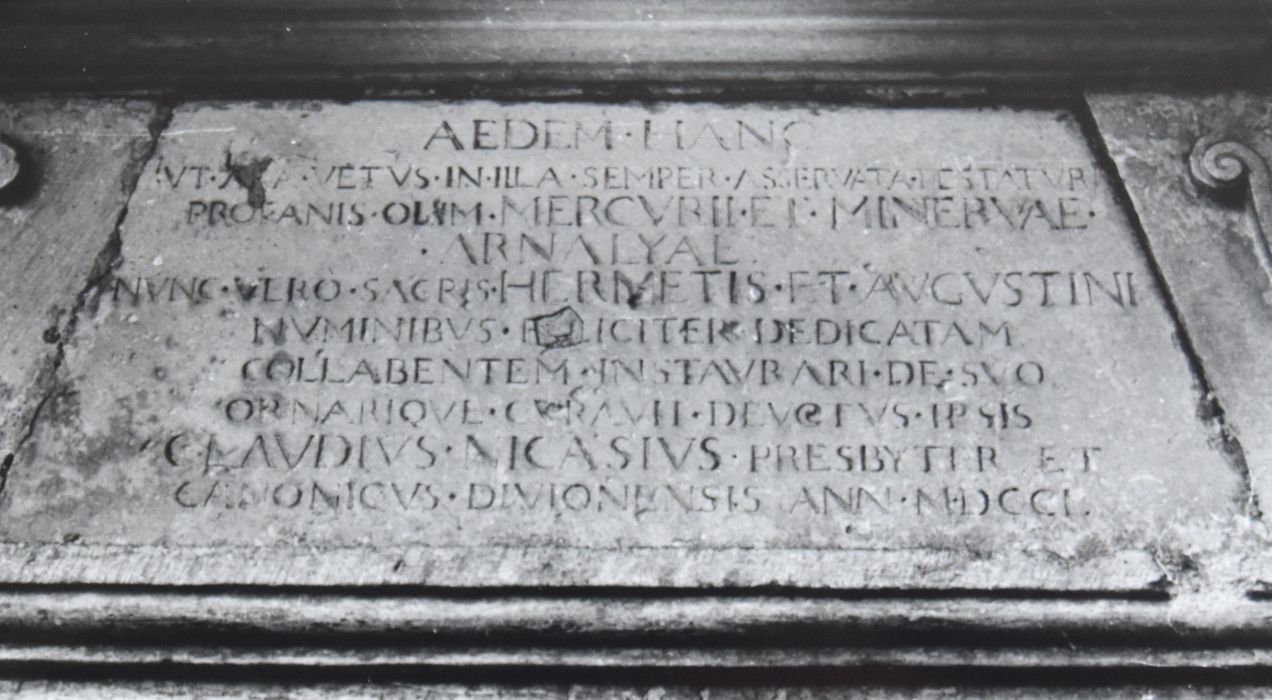 AEDEM·HANC
UT· ·VETUS·IN·ILLA·SEMPER·ASSERVATA·TESTATUR
PROFANIS·OLIM·MERCVRII·ET·MINERVAE·
·ARNALYAE·
NVNC·VERO·SACRIS·HERMETIS·ET·AVGVSTINI
NVMINIBVS· DEDICATAM
COLLABENTEM·INSTAVRARI·DE·SVO
ORNARIQVE·CVRAVIT·DEVOTVS·IPSIS
CLAVDIVS·NICASIVS·PRESBYTER ET
CANONICVS·DIVIONENSIS ANN·MDCCI.